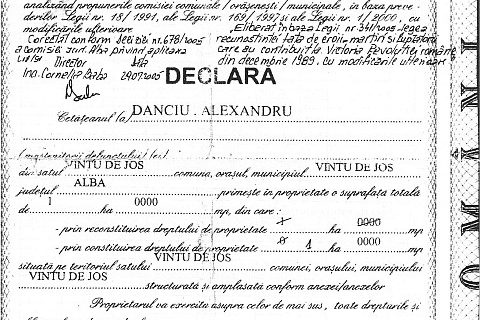 analizând propunerile comisiei comunale / orăşeneşti / municipale, în baza preve-
derilor Legii nr. 18 / 1991, ale Legii nr. 169 / 1997 şi ale Legii nr. 1 / 2000, cu
modificările ulterioare
"Eliberat în baza Legii nr. 341/2004 Legea
Corectat conform deciziei nr. 678/2005
recunostintei fata de eroii martiri si luptatorii
a comisiei jud. Alba privind aplicarea
care au contribuit la Victoria Revolutiei române
L18/91
din decembrie 1989, cu modificările ulterioare
Director
Ing. Cornelia Barbo
DECLARĂ
DANCIU . ALEXANDRU
Cetăţeanul (a)
(moştenitorii defunctului) (ei)
VINTU DE JOS
VINTU DE JOS
din satul comuna, oraşul, municipiul
ALBA
judeţul primeşte în proprietate o suprafaţă totală
1 0000
de ha mp, din care :
x 0000
- prin reconstituirea dreptului de proprietate ha mp
1 0000
- prin constituirea dreptului de proprietate ha mp
VINTU DE JOS
situată pe teritoriul satului comunei, oraşului, municipiului
VINTU DE JOS
structurată şi amplasată conform anexei/anexelor
Proprietarul va exercita asupra celor de mai sus, toate drepturile şi